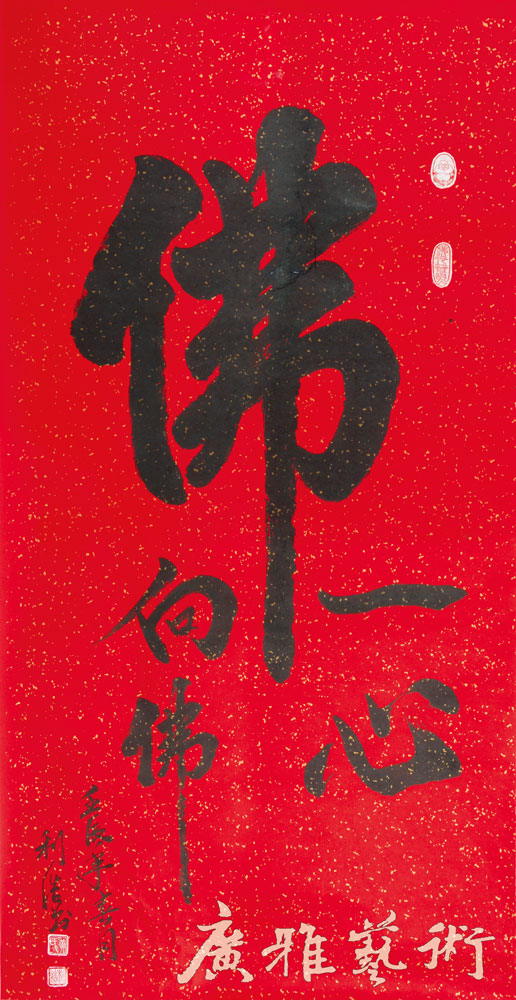 佛
一心
向佛
壬辰年春月
廣雅藝術